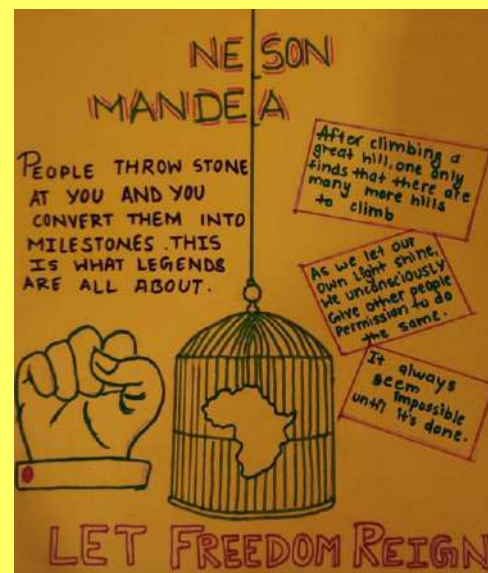 NELSON
MANDELA
PEOPLE THROW STONE
AT YOU AND YOU
CONVERT THEM INTO
MILESTONES. THIS
IS WHAT LEGENDS
ARE ALL ABOUT.
After climbing a
great hill, one only
finds that there are
many more hills
to climb
As we let our
own light shine,
We unconsciously
Give other people
Permission to do
the same.
It always
seem impossible
until it's done.
LET FREEDOM REIGN